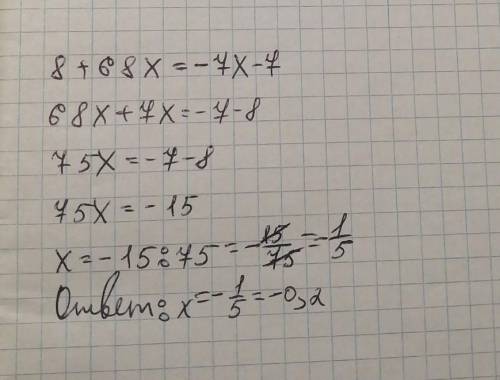 8 + 68x = -7x - 7
68x + 7x = -7 - 8
75x = -7 - 8
75x = -15
x = -15 : 75 = -15/75 = -1/5
Ответ: x = -1/5 = -0,2